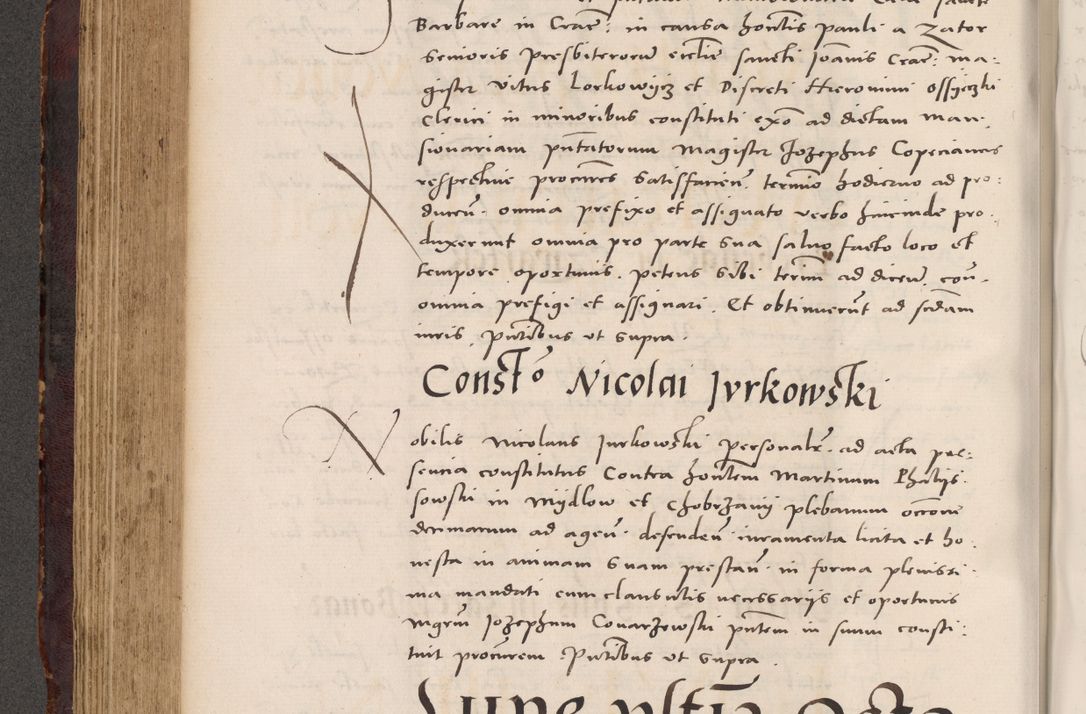 Barbare in Crac: in causa hontlis Pauli a Zator
Senioris Presbiterorum ecclie sancti Joannis Crac: ma:
gister Vitus Lorkowycz et Discreti Hieronimi Ossyeczki
Clerici in minoribus constituti exo ad dictam man:
sionariam pntatorum Magister Jozephus Copecianus
respective procures satisfacien. termio hodierno ad pro:
ducen. omnia prefixo et assignato verbo hincinde pro:
duxerunt omnia pro parte sua salvo facto loco et
tempore oportunis. petens sibi terim ad dicen. con.
omnia prefigi et assignari. Et obtinuerut ad sedam
iuris. Pntibus ut supra.
Consto Nicolai Jvrkowski
Nobilis Nicolaus Jurkowski personalr. ad acta pre:
sencia constitutus Contra hontem Martinum
sowski in Mydlow et Chobrzany plebanum occone
decimarum ad agen. defenden. iuramenta licita et ho:
nesta in animam suam prestan. in forma plenissi:
ma mandati cum clausulis necessariis et oportunis
Mgrm Jozephum Conarzewski pntem in suum consti:
tuit procurem. Pntibus ut supra.